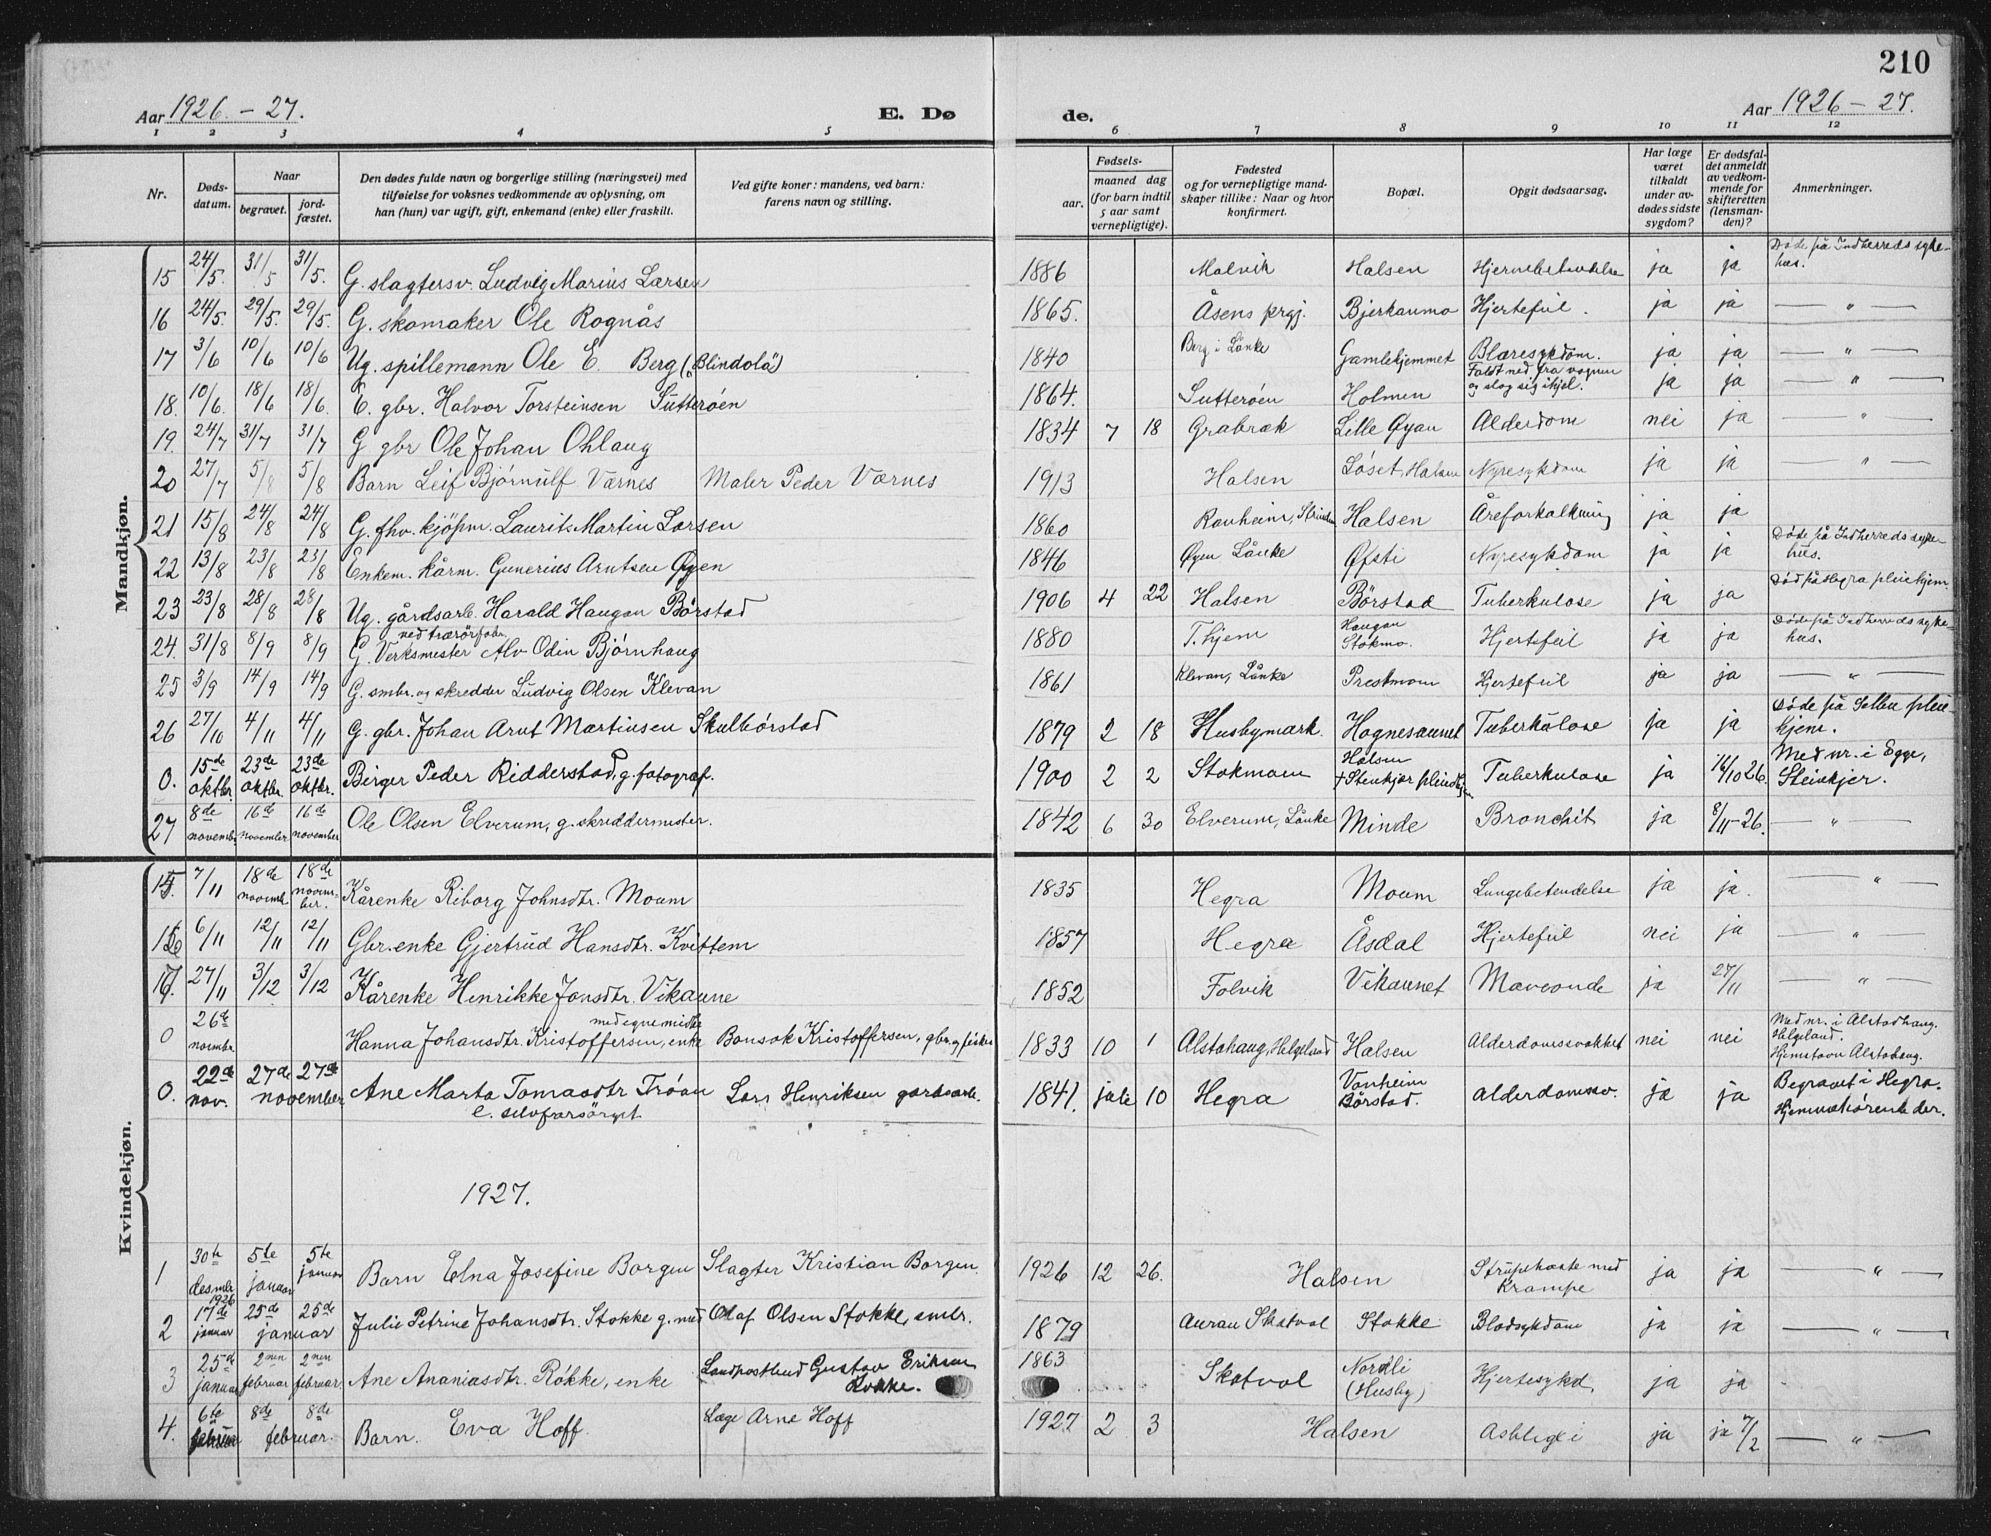 210
Aar 1926 – 27.
E. Dø
de.
Aar 1926 – 27.
1 2 3 4 5 6 7 8 9 10 11 12
Nr.
Døds-
datum.
Naar
begravet.
jord-
fæstet.
Den dødes fulde navn og borgerlige stilling (næringsvei) med
tilføielse for voksnes vedkommende av oplysning, om
han (hun) var ugift, gift, enkemand (enke) eller fraskilt.
Ved gifte koner: mandens, ved barn:
farens navn og stilling.
Fødsels-
aar.
maaned dag
(for barn indtil
5 aar samt
vernepligtige).
Fødested
og for vernepligtige mand-
skaper tillike: Naar og hvor
konfirmert.
Bopæl.
Opgit dødsaarsag.
Har læge
været
tilkaldt
under av-
dødes sidste
sygdom?
Er dødsfal-
det anmeldt
av vedkom-
mende for
skifteretten
(lensman-
den)?
Anmerkninger.
Mandkjøn.
15 24/5. 31/5 31/5. G. slagtersv. Ludvig Marius Larsen 1886 Malvik Halsen Hjernebetændelse ja ja Døde på Indherreds syke-
hus.
16 24/5. 29/5. 29/5. G. skomaker Ole Rognås 1865. Åsens prgj. Bjerkanmo Hjertefeil. ja ja — " —
17 3/6 10/6 10/6 Ug. spillemann Ole E. Berg (Blindola) 1840 Berg i Lånke Gamlehjemmet Blæresykdom. ja ja — " —
18. 10/6. 18/6 18/6. E. gbr. Halvor Torsteinsen Sutterøen 1864. Sutterøen Holmen Faldt ned fra vognen
og slog sig ihjel. ja ja — " —
19. 24/7 31/7 31/7 G gbr Ole Johan Ohlaug 1834 7 18 Grabræk Lille Øyan Alderdom nei ja "
20 27/7 5/8 5/8 Barn Leif Bjørnulf Værnes Maler Peder Værnes 1913 Halsen Løset, Halsen Nyresykdom ja ja — " —
21 15/8 24/8 24/8 G. fhv. kjøpm. Laurits Martin Larsen 1860 Ranheim, Strinden Halsen Åreforkalkning ja ja
22 13/8 23/8 23/8 Enkem. kårm. Gunerius Arntsen Øyen 1846 Øyen Lånke Øfsti Nyresykdom ja ja Døde på Indherreds syke-
hus.
23 23/8 28/8 28/8 Ug. gårdsarb. Harald Haugan Børstad 1906 4 22 Halsen Børstad Tuberkulose ja ja Død på Hegra pleiehjem.
24. 31/8 8/9 8/9 ved trærörfabr.
G. Verksmester Alv Odin Bjørnhaug 1880 T.hjem Haugan
Stokmo. Hjertefeil ja ja Døde på Indherreds syke-
hus.
25 3/9 14/9 14/9 G. smbr. og skredder Ludvig Olsen Klevan 1861 Klevan, Lånke Prestmoen Hjertefeil ja ja — " —
26 27/10 4/11 4/11 G. gbr. Johan Arnt Martinsen Skulbørstad 1879 2 18 Husbymark. Hognesaunet Tuberkulose ja ja Døde på Selbu pleie-
hjem.
0. 15de oktbr. 23de oktbr. 23de oktbr. Birger Peder Ridderstad, g. fotograf. 1900 2 2 Stokmoen Halsen
+ Stenkjær pleiehjem Tuberkulose ja 16/10 26. Med nr. i Egge,
Steinkjer.
27 8de novembr. 16de november 16de november Ole Olsen Elverum, g. skreddermester. 1842 6 30 Elverum, Lånke Minde Bronchit ja 8/11-26. — " —
Kvindekjøn.
15. 7/11 18de novembr. 18de novem-
ber. Kårenke Riborg Johnsdtr. Moum 1835 Hegra Moum Lungebetendelse ja ja. — " —
16 6/11 12/11 12/11 Gbr.enke Gjertrud Hansdtr. Kvittem 1857 Hegra Åsdal Hjertefeil nei ja — " —
17. 27/11 3/12 3/12 Kårenke Henrikke Jonsdtr. Vikaune 1852 Folvik Vikaunet Mavesonde ja 27/11 — " —
0 26de novembr. med egne midler
Hanna Johansdtr. Kristoffersen, enke Bonsak Kristoffersen, gbr. og fisker 1833 10 1 Alstahaug, Helgeland Halsen Alderdomssvakhet nei nei Med nr. i Alstadhaug.
Helgeland.
Hjemstavn Alstahaug.
0. 22de nov. 27de 27de november Ane Marta Tomasdtr Trøan Lars Henriksen gardsarb. 1841. jule 10 Hegra Vonheim
Børstad. Alderdomssv. ja ja Begravet i Hegra.
e. selvforsørget. Hjemmehørende der.
1927.
1 30te desmbr 1926 5te januar 5te januar Barn Elna Josefine Borgen Slagter Kristian Borgen. 1926 12 26. Halsen Strupehoste med
Krampe ja ja — " —
2 17de januar 25de 25de januar Julie Petrine Johansdtr. Stokke g. med Olaf Olsen Stokke, smbr. 1879 Auran Skatval Stokke Blodsykdom ja ja — " —
3 25de januar 2nen februar 2nen februar. Ane Ananiasdtr. Røkke, enke Landpostbud Gustav Eriksen
Røkke. 1863 Skatval Nordli
(Husby) Hjertesykd. ja ja
4. 6te februar 8de 8de februar. Barn. Eva Hoff. Læge Arne Hoff 1927 2 3 Halsen Asbligti ja ja 7/2 — " —